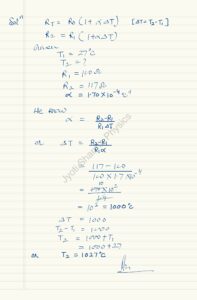 Solⁿ RT = R0 (1 + α ΔT) [ΔT = T2 - T1]
R2 = R1 (1 + α ΔT)
Given
T1 = 27°C
T2 = ?
R1 = 100 Ω
R2 = 117 Ω
α = 1.70 × 10⁻⁴ °C⁻¹
We know
α = R2 - R1 / R1 ΔT
or ΔT = R2 - R1 / R1 α
= 117 - 100 / 100 × 1.7 × 10⁻⁴
= 10³ = 1000°C
ΔT = 1000
T2 - T1 = 1000
T2 = 1000 + T1
= 1000 + 27
or T2 = 1027°C
Jyoti Sharma Physics